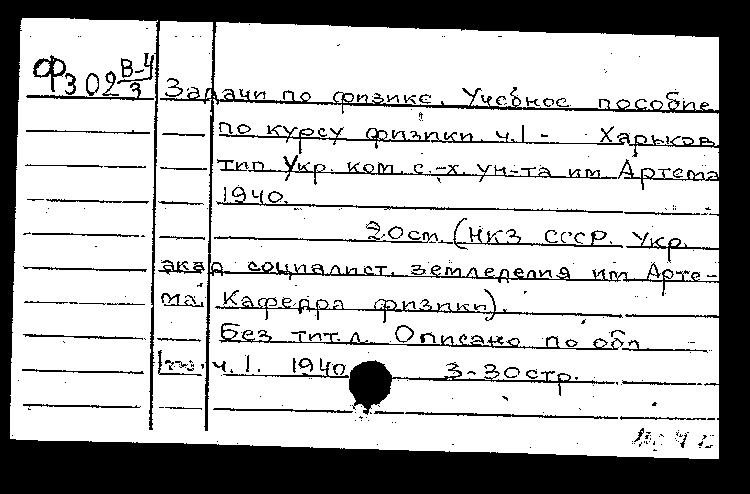 Фз 02 В-4/3
Задачи по физике. Учебное пособие
по курсу физики ч.1 - Харьков
тип Укр. ком. с.-х. ун-та им Артема
1940.
20 ст. (НКЗ СССР. Укр.
акад. социалист. земледелия им Арте-
ма. Кафедра физики).
Без тит.л. Описано по обл.
ч.1. 1940 3-30стр.